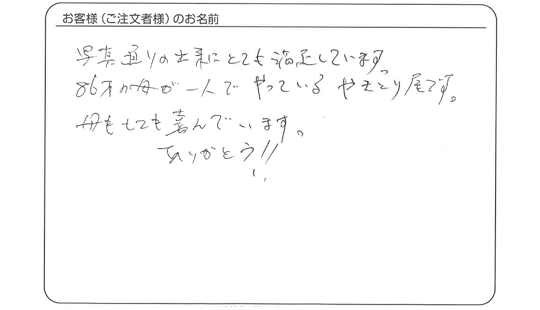 お客様（ご注文者様）のお名前
写真通りの出来にとても満足しています。
86才の母が一人でやっているやきとり屋です。
母もとても喜んでいます。
ありがとう!!